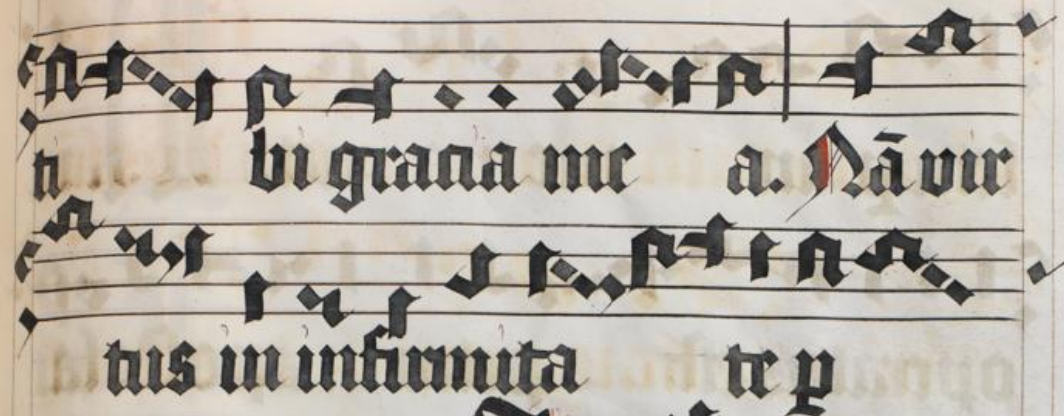 ti bi gracia me a. Nā vir
tus in infirmita te p